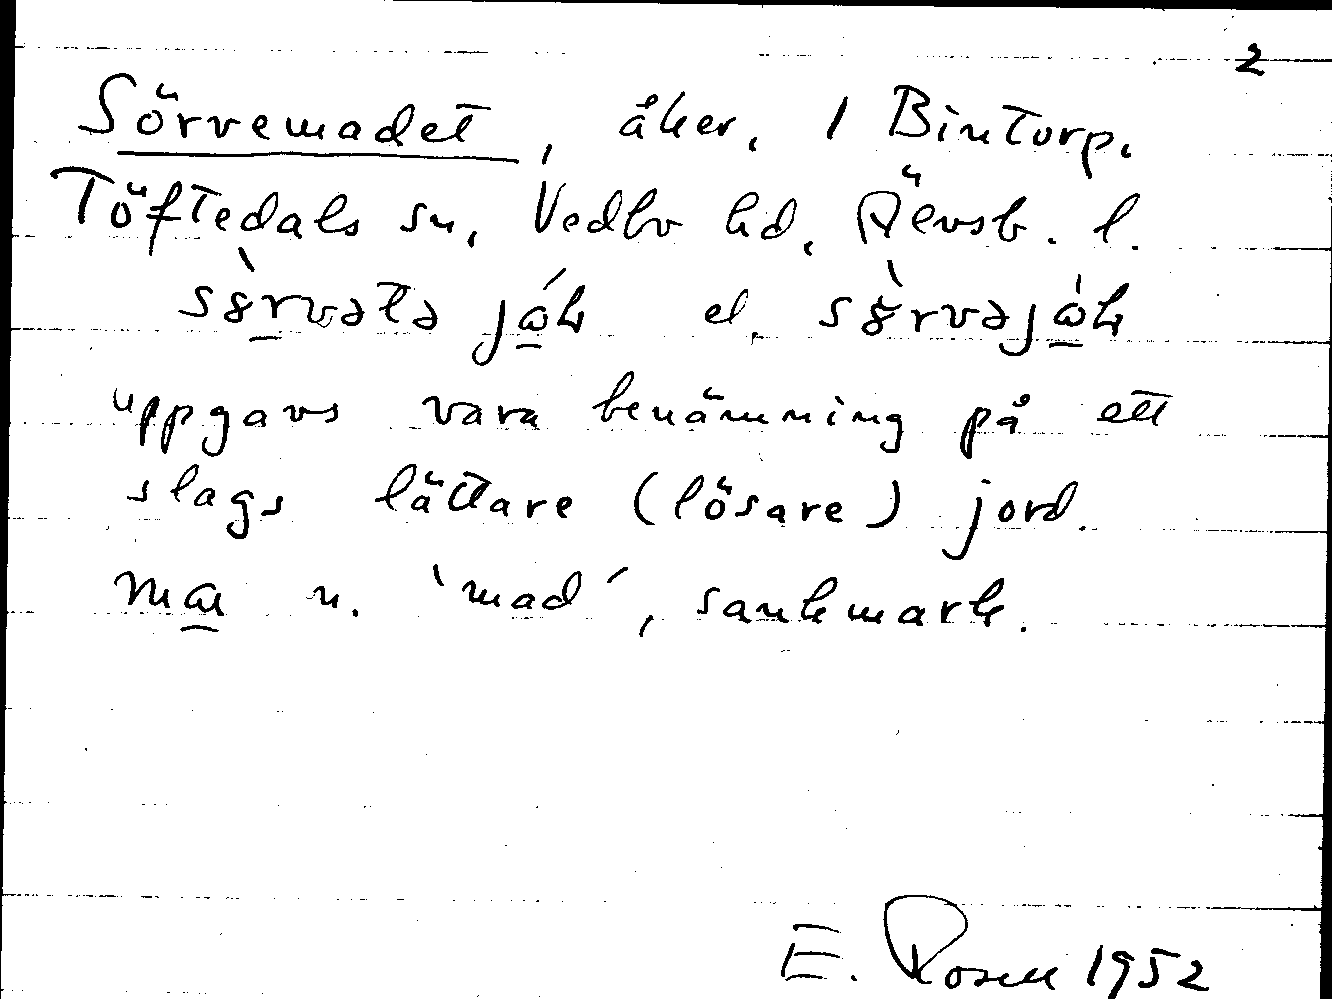 2
Sörvemadet, åker, 1 Bintorp.
Töftedals sn, Vedbo hd, Älvsb. l.
uppgavs vara benämning på ett
slags lättare (lösare) jord.
n. 'mad', sankmark.
E. Rosén 1952